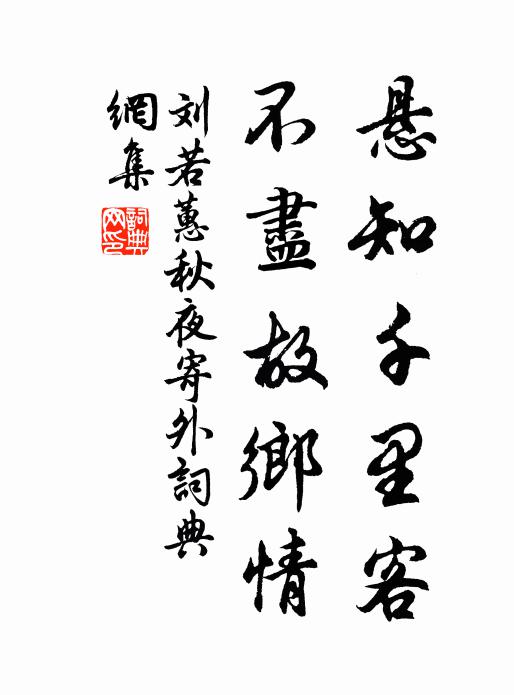 悬知千里客
不盡故鄉情
刘若蕙秋夜寄外詞典
網集
詞典網印